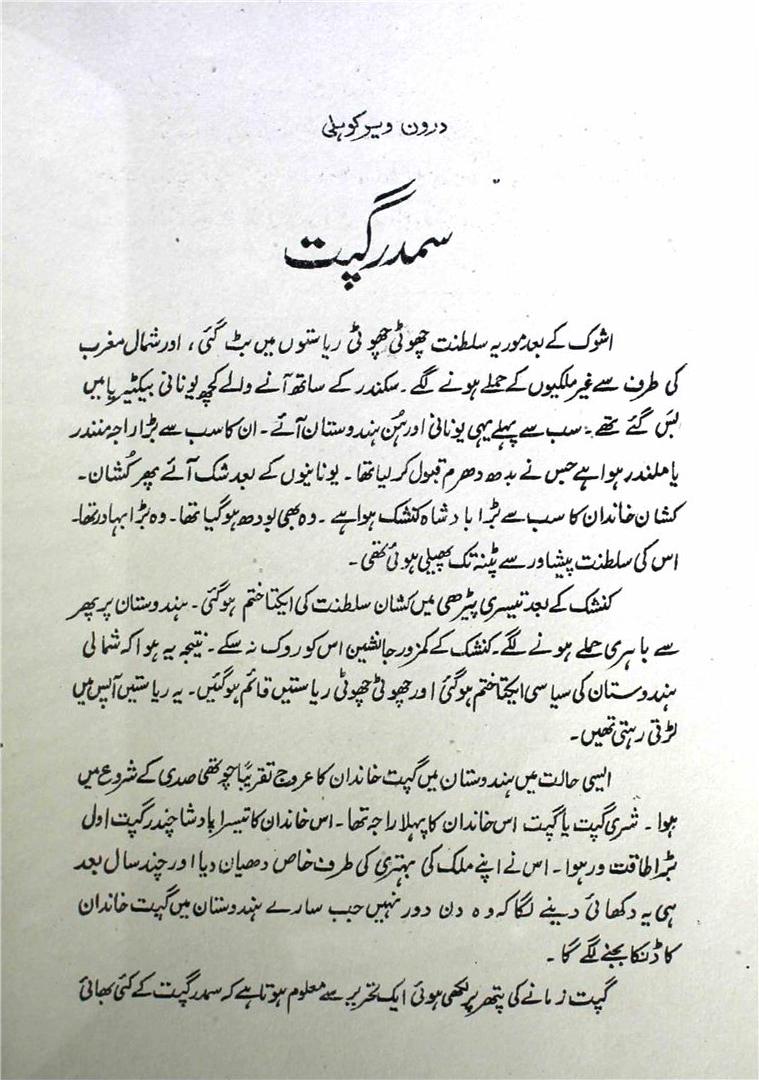 درون ویر کوہلی
سمدر گپت
اشوک کے بعد موریہ سلطنت چھوٹی چھوٹی ریاستوں میں بٹ گئی، اور شمال مغرب
کی طرف سے غیر ملکیوں کے حملے ہونے لگے۔ سکندر کے ساتھ آنے والے کچھ یونانی بیکٹیریا میں
بس گئے تھے۔ سب سے پہلے یہی یونانی اور ہُن ہندوستان آئے۔ ان کا سب سے بڑا راجہ منندر
یا ملندر ہوا ہے جس نے بدھ دھرم قبول کر لیا تھا۔ یونانیوں کے بعد شک آئے پھر کُشان۔
کشان خاندان کا سب سے بڑا بادشاہ کنشک ہوا ہے۔ وہ بھی بودھ ہو گیا تھا۔ وہ بڑا بہادر تھا۔
اس کی سلطنت پیشاور سے پٹنہ تک پھیلی ہوئی تھی۔
کنشک کے بعد تیسری پیڑھی میں کشان سلطنت کی ایکتا ختم ہو گئی۔ ہندوستان پر پھر
سے باہری حملے ہونے لگے۔ کنشک کے کمزور جانشین اس کو روک نہ سکے۔ نتیجہ یہ ہوا کہ شمالی
ہندوستان کی سیاسی ایکتا ختم ہو گئی اور چھوٹی چھوٹی ریاستیں قائم ہو گئیں۔ یہ ریاستیں آپس میں
لڑتی رہتی تھیں۔
ایسی حالت میں ہندوستان میں گپت خاندان کا عروج تقریباً چوتھی صدی کے شروع میں
ہوا۔ شری گپت یا گپت اس خاندان کا پہلا راجہ تھا۔ اس خاندان کا تیسرا بادشا چندر گپت اول
بڑا طاقت ور ہوا۔ اس نے اپنے ملک کی بہتری کی طرف خاص دھیان دیا اور چند سال بعد
ہی یہ دکھائی دینے لگا کہ وہ دن دور نہیں جب سارے ہندوستان میں گپت خاندان
کا ڈنکا بجنے لگے گا۔
گپت زمانے کی پتھر پر لکھی ہوئی ایک تحریر سے معلوم ہوتا ہے کہ سمدر گپت کے کئی بھائی